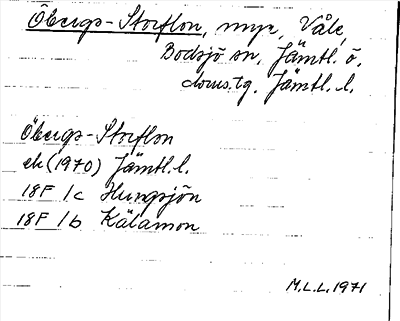 Öbergs-Storflon, myr, Våle,
Bodsjö sn, Jämtl. ö.
doms.tg. Jämtl. l.
Öbergs-Storflon
ek (1970) Jämtl. l.
18F 1c Hungsjön
18F 1b Kälarmon
M.L.L. 1971